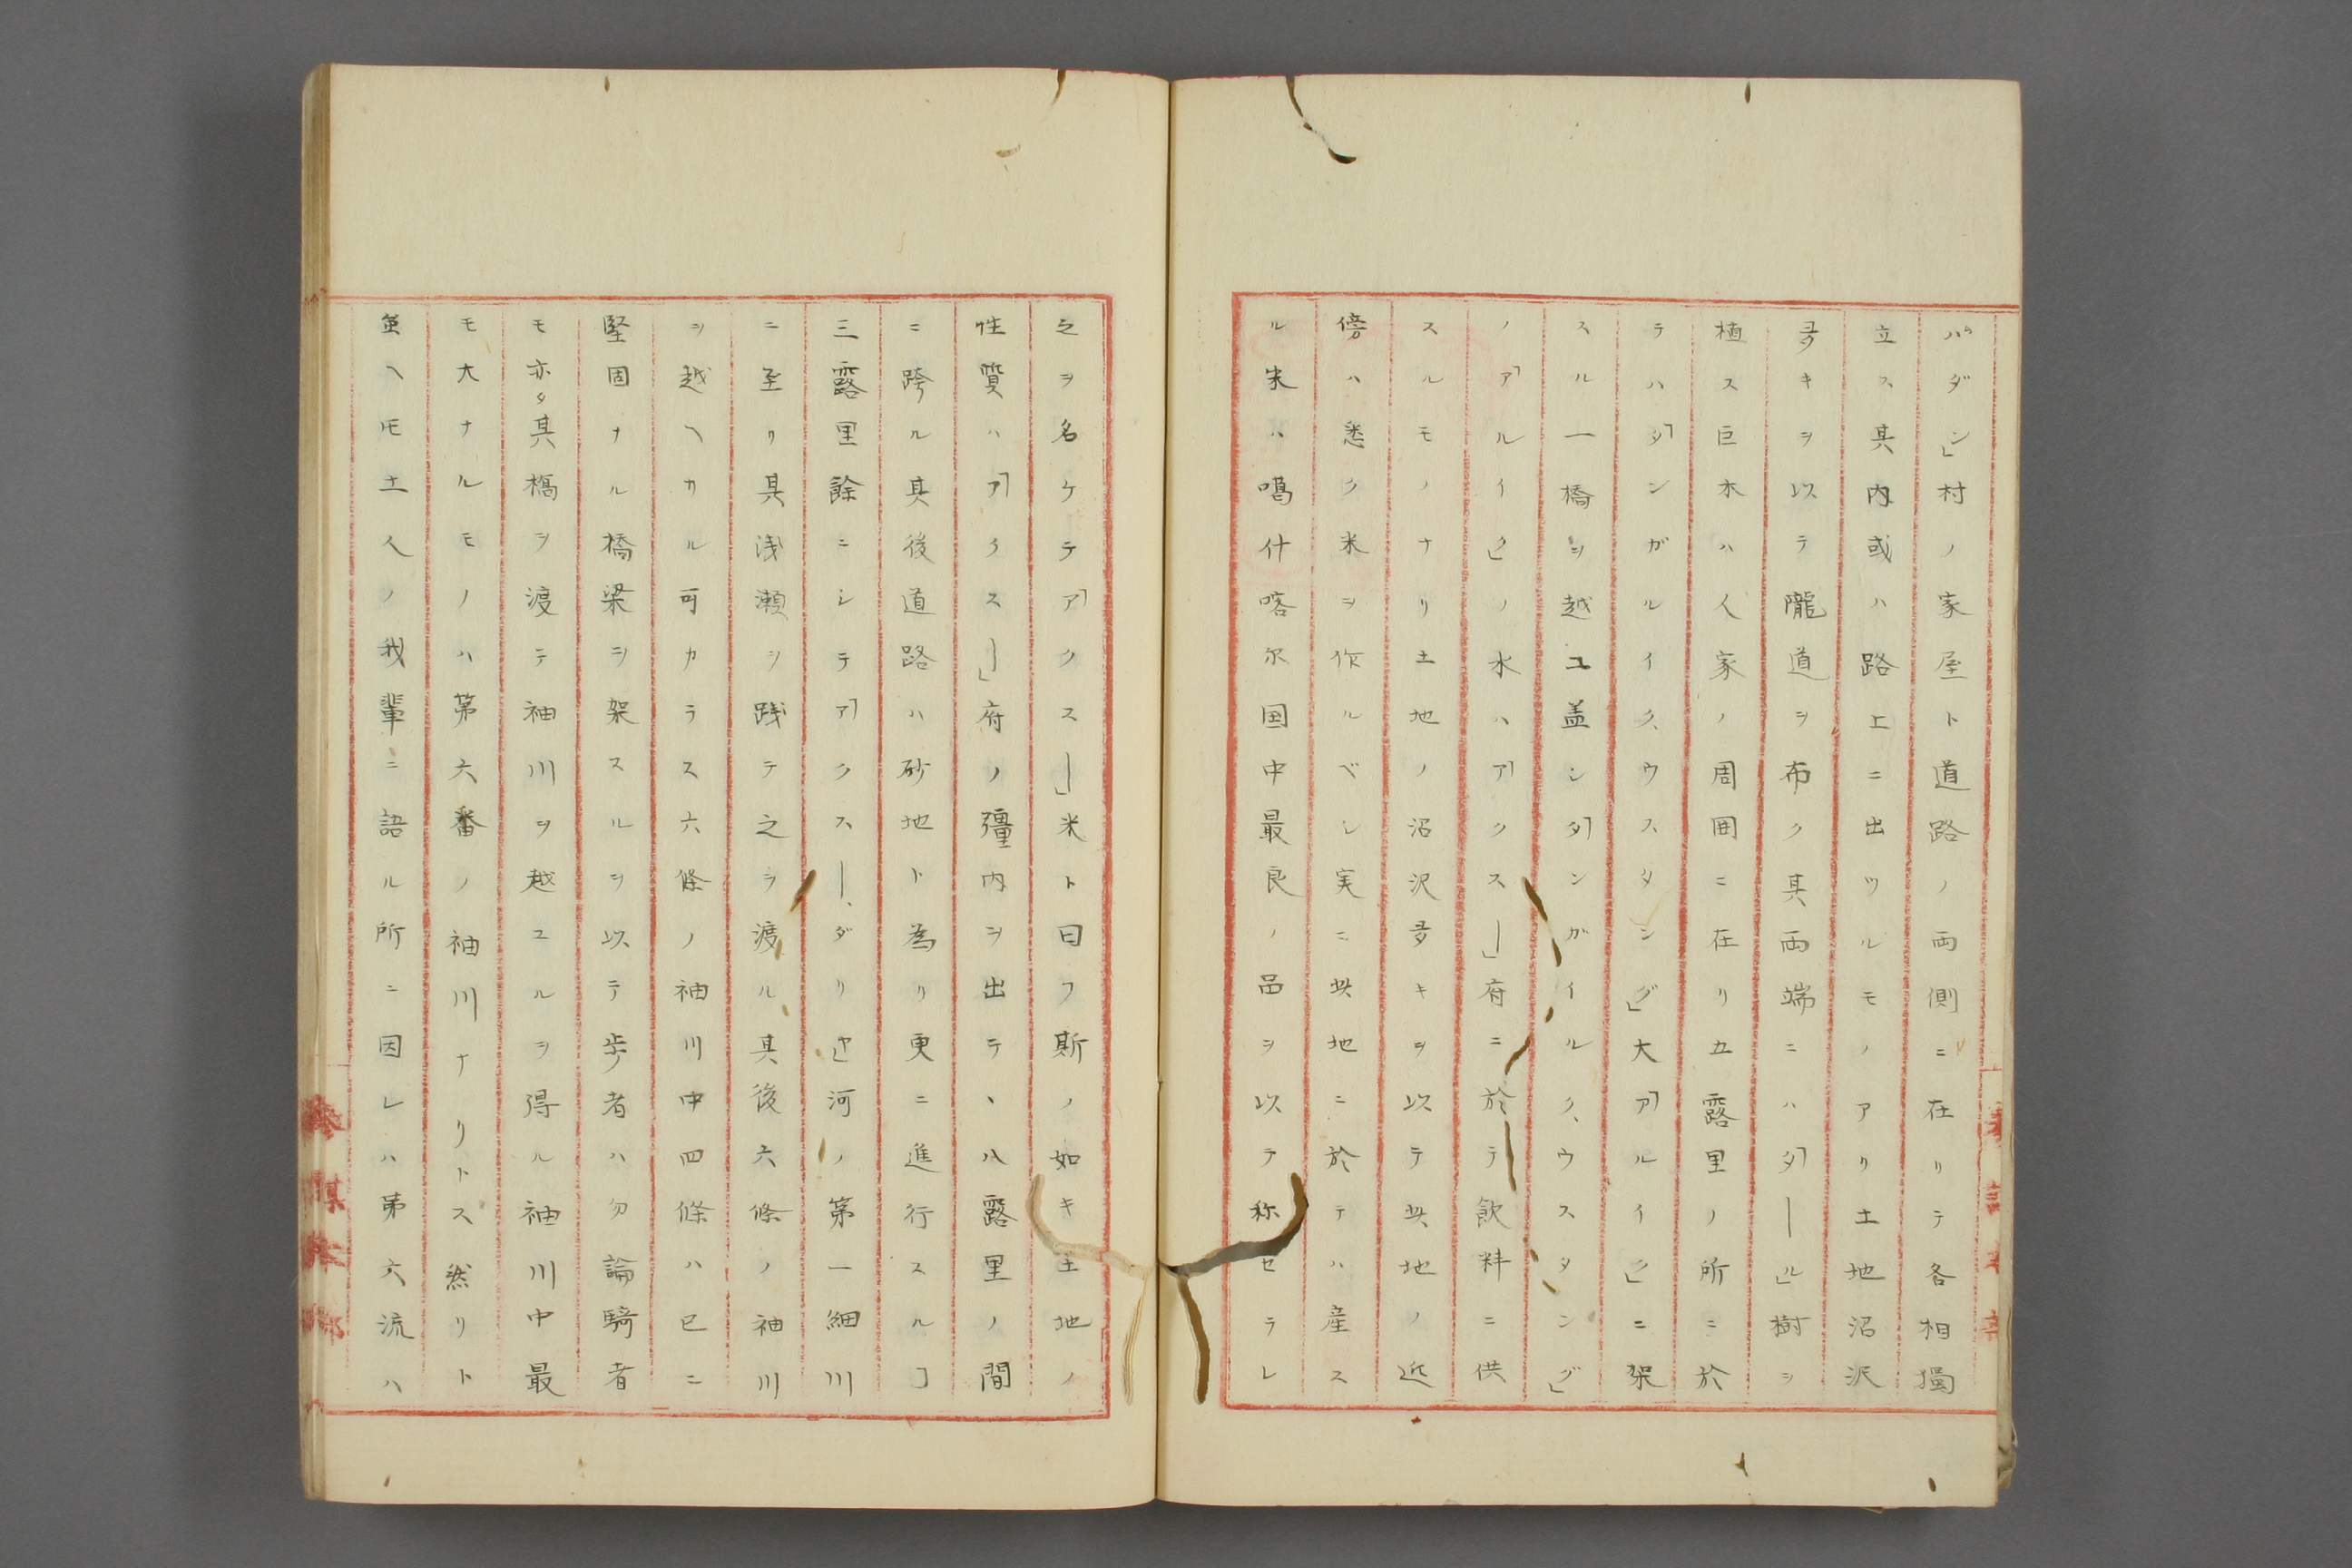 パダン」村ノ家屋ト道路ノ両側ニ在リテ各相獨
立ス其内或ハ路上ニ出ツルモノアリ土地沼沢
多キヲ以テ隴道ヲ布ク其両端ニハ「タール」樹ヲ
植ス巨木ハ人家ノ周囲ニ在リ五露里ノ所ニ於
テハ「タンガルイク、ウスタング」大「アルイク」ニ架
スル一橋ヲ越ユ盖シ「タンガイルク、ウスタング」
ノ「アルイク」ノ水ハ「アクスー」府ニ於テ飲料ニ供
スルモノナリ土地ノ沼沢多キヲ以テ其地ノ近
傍ハ悉ク米ヲ作ルベシ実ニ其地ニ於テハ産ス
ル米ハ噶什喀尓国中最良ノ品ヲ以テ称セラレ
之ヲ名ケテ「アクスー」米ト曰フ斯ノ如キ土地ノ
性質ハ「アクスー」府ノ彊内ヲ出テヽ八露里ノ間
ニ跨ル其後道路ハ砂地ト為リ更ニ進行スルヿ
三露里餘ニシテ「アクスー、ダリヤ」河ノ第一細川
ニ至リ其浅瀬ヲ践テ之ヲ渡ル其後六條ノ袖川
ヲ越ヘカル可カラス六條ノ袖川中四條ハ已ニ
堅固ナル橋梁ヲ架スルヲ以テ歩者ハ勿論騎者
モ亦タ其橋ヲ渡テ袖川ヲ越ユルヲ得ル袖川中最
モ大ナルモノハ第六番ノ袖川ナリトス然リト
虽ヘ𪜈土人ノ我輩ニ語ル所ニ因レハ第六流ハ
參謀本部